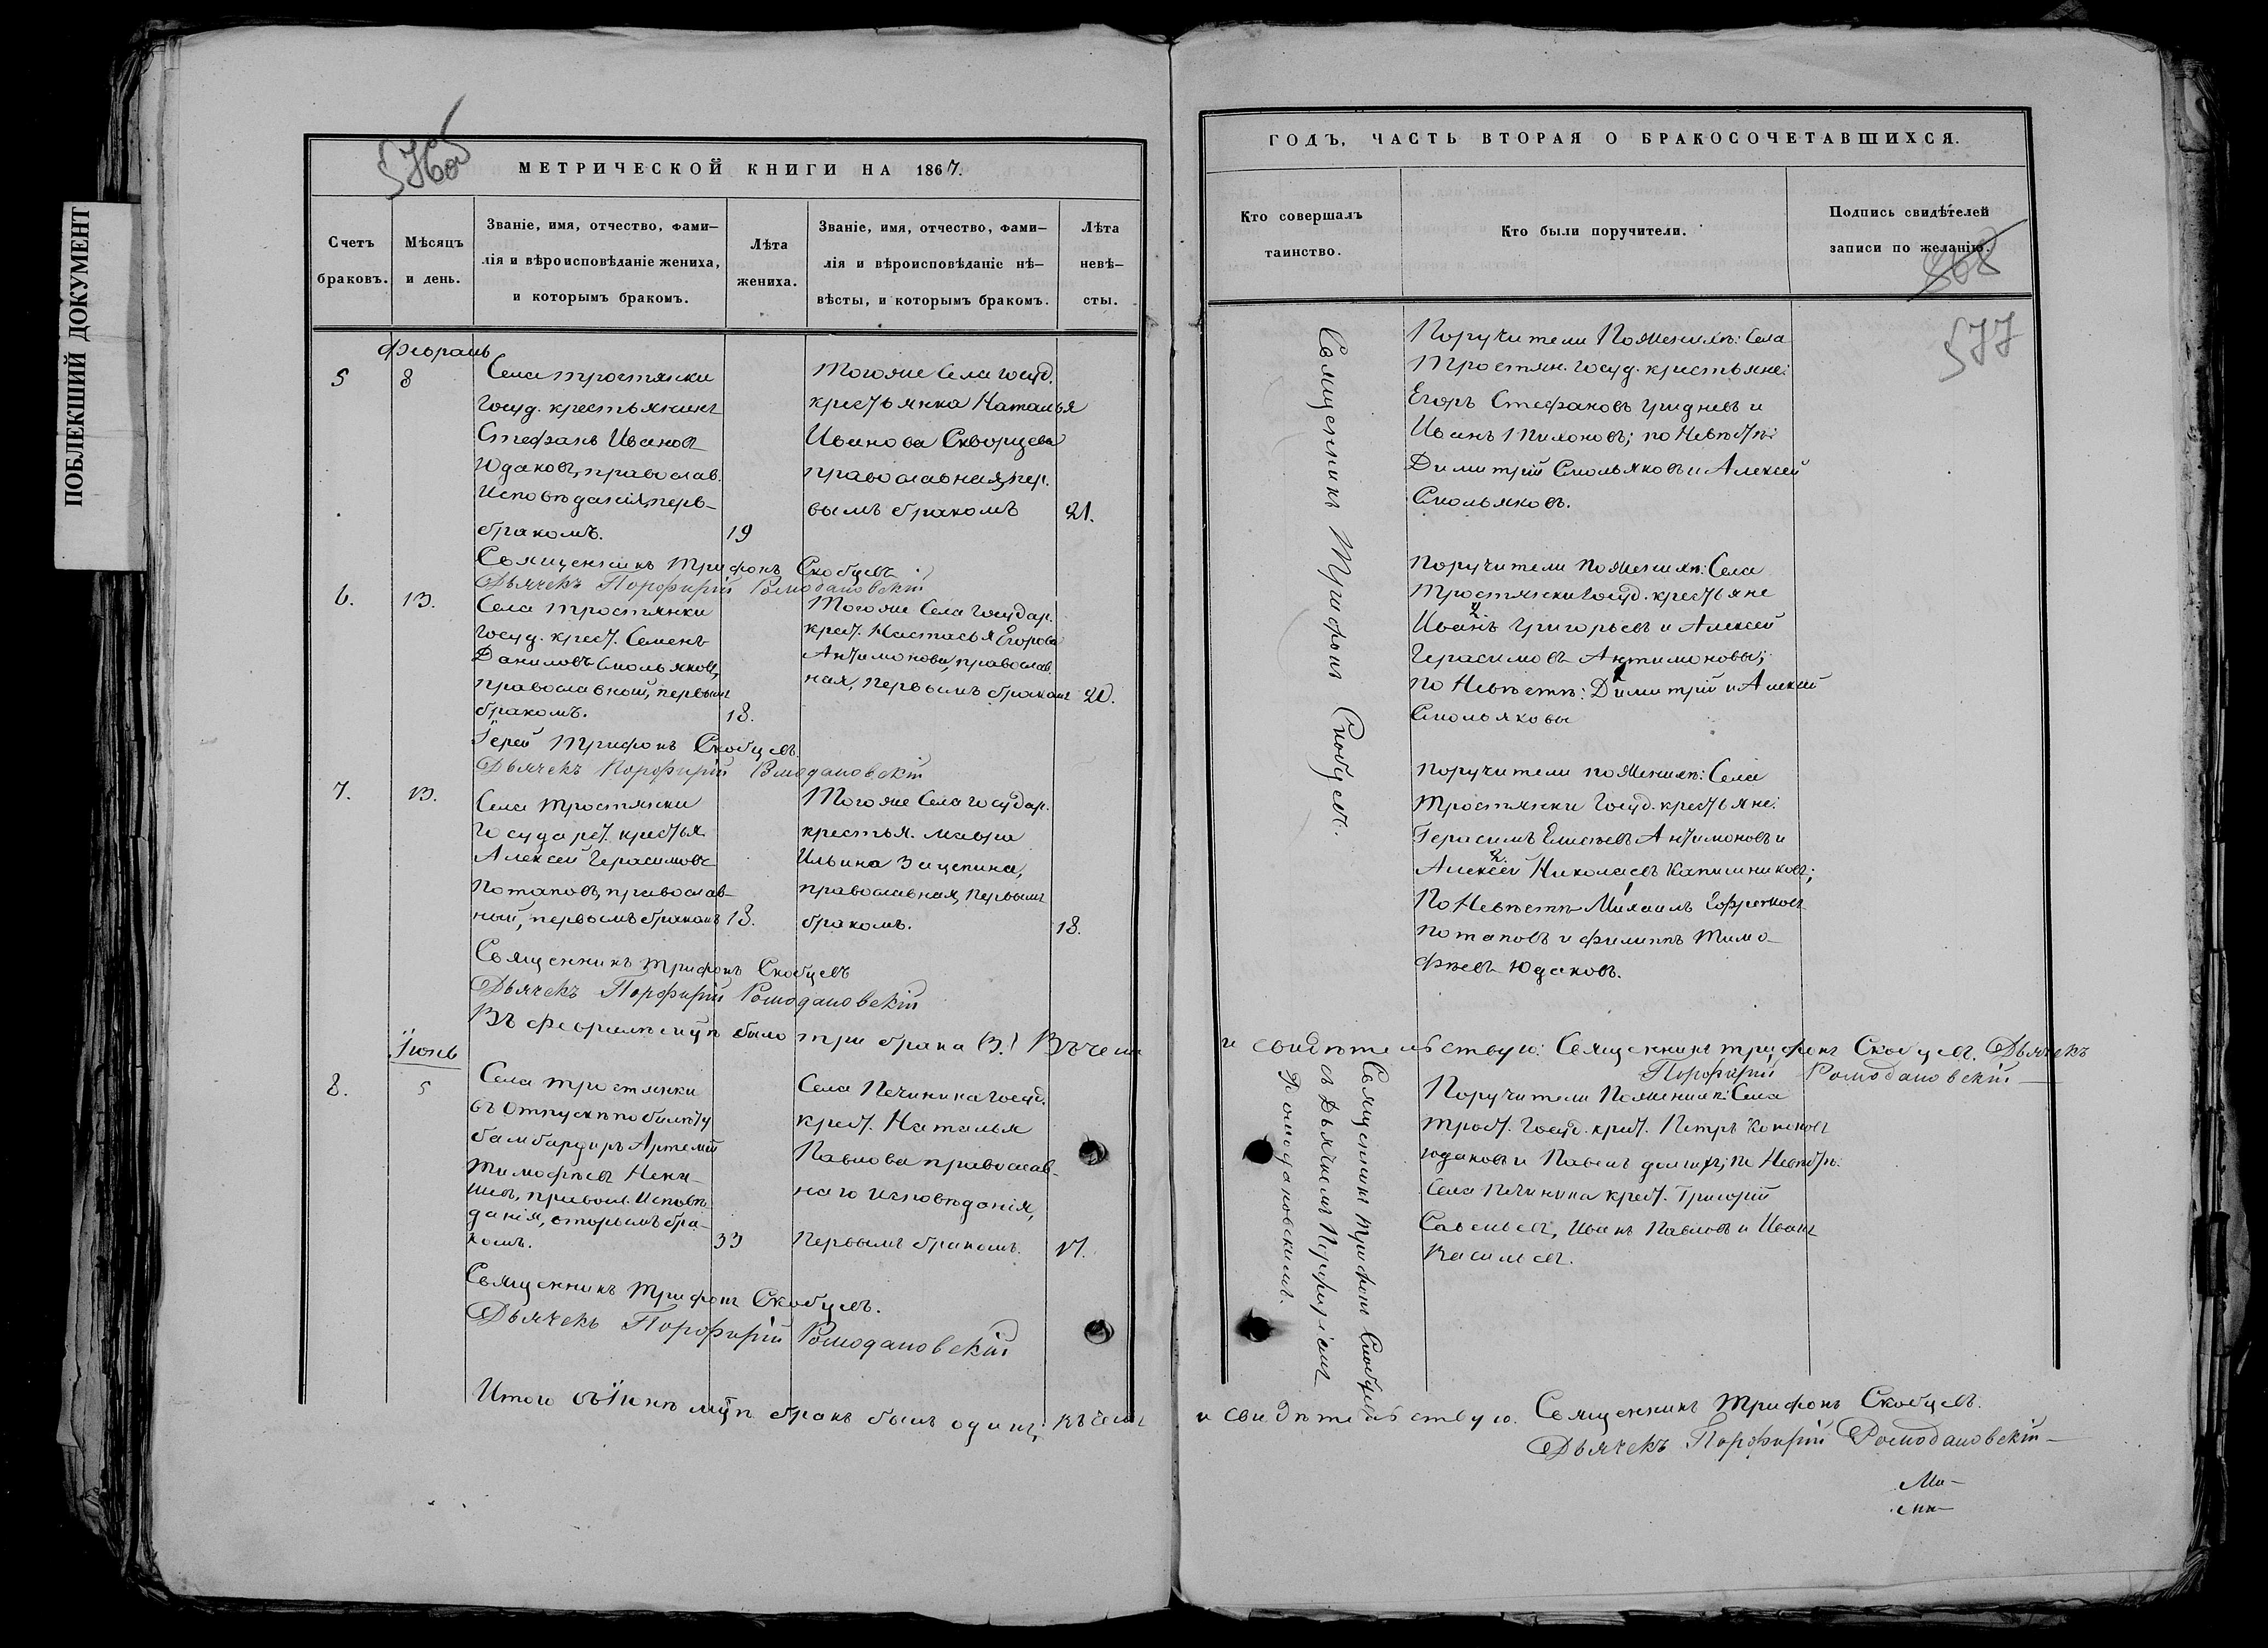 ПОБЛЕКШИЙ ДОКУМЕНТ
576об
МЕТРИЧЕСКОЙ КНИГИ НА 1867.
Счетъ браковъ.
Мѣсяцъ и день.
Званіе, имя, отчество, фами-
лія и вѣроисповѣданіе жениха,
и которымъ бракомъ.
Лѣта жениха.
Званіе, имя, отчество, фами-
лія и вѣроисповѣданіе нѣ-
вѣсты, и которымъ бракомъ.
Лѣта невѣ-
сты.
Февраль
5
8
Села Тростянки
Госуд. крестьянинъ
Стефанъ Ивановъ
Юдаковъ, православ.
Исповѣданія, перв-
бракомъ.
19
Тогоже Села госуд.
крестьянка Наталья
Иванова Скворцева
православная, пер.
вымъ бракомъ
21.
Священникъ Трифонъ Скобцевъ
Дьячекъ Порфирій Ромодановскій
6.
13.
Села Тростянки
Госуд. крест. Семенъ
Даниловъ Смольяковъ,
православной, первымъ
бракомъ.
18.
Тогоже Села Государ.
крест. Настасья Егорова
Антимонова, православ
ная, первымъ бракомъ
20.
Іерей Трифонъ Скобцевъ
Дьячекъ Порфирій Ромодановскій
7.
13.
Села Тростянки
Государст. крестья
Алексей Герасимовъ
Потаповъ, православ-
ной, первымъ бракомъ
18.
Тогоже Села Государ.
крестья. Мавра
Ильина Зацепина,
православная, первымъ
бракомъ.
18.
Священникъ Трифонъ Скобцевъ
Дьячекъ Порфирій Ромодановскій
Въ Февралѣ мцѣ было три брака (3.) Въ чемъ
Іюнь
8.
5
Села Тростянки
въ Отпуску по билѣту
бамбардиръ Артемій
Тимофѣевъ
правосл. Исповѣ-
данія, вторымъ бра-
комъ.
33
Села Печинина госуд.
крест. Наталья
Павлова православ-
наго исповѣданія,
Первымъ бракомъ.
17.
Священникъ Трифонъ Скобцевъ.
Дьячекъ Порфирій Ромодановскій
Итого въ Іюнѣ мцѣ бракъ былъ одинъ; въ чемъ
ГОДЪ, ЧАСТЬ ВТОРАЯ О БРАКОСОЧЕТАВШИХСЯ.
Кто совершалъ
таинство.
Кто были поручители.
Подпись свидѣтелей
записи по желанію.
568
577
Священникъ Трифонъ Скобцевъ.
Поручители По Женихѣ: Села
Тростян. госуд. крестьяне:
Егоръ Стефановъ Гридневъ и
Иванъ; по Невѣстѣ:
Димитрій Смольяковъ и Алексей
Смольяковъ.
Поручители по Женихѣ: Села
Тростянки Госуд. крестьяне
Иванъ Григорьевъ и Алексей
Герасимовъ Антимоновы;
по Невѣстѣ: Димитрій и Алексей
Смольяковы
Поручители по Женихѣ: Села
Тростянки Госуд. крестьяне:
Герасимъ Елисѣевъ Антимоновъ и
Алексей Николаевъ;
По Невѣстѣ Михаилъ
Потаповъ и Филиппъ Тимо-
фѣевъ Юдаковъ.
и свидѣтельствую: Священникъ Трифонъ Скобцевъ. Дьячекъ
Порфирій Ромодановскій
Священникъ Трифонъ Скобцевъ
съ Дьячкомъ Порфиріемъ
Ромодановскимъ.
Поручители По Женихѣ: Села
Трост. Госуд. крест. Петръ Кононовъ
Юдаковъ и Павелъ; по Невѣстѣ:
Села Печинина крест. Григорій
Савельевъ, Иванъ Павловъ и Иванъ
Васильевъ.
и свидѣтельствую. Священникъ Трифонъ Скобцевъ.
Дьячекъ Порфирій Ромодановскій